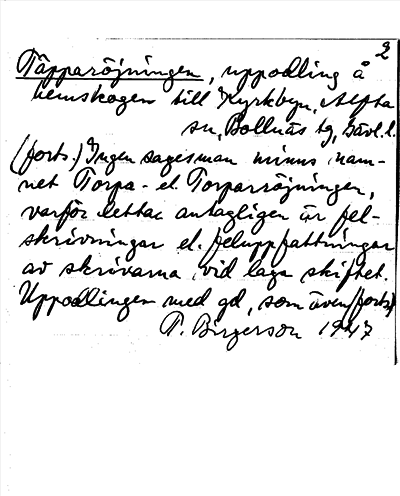 2
Täpparöjningen, uppodling å
hemskogen till Kyrkbyn, Alfta
sn, Bollnäs tg, Gävl. l.
(forts.) Ingen sagesman minns nam-
net Torpa- el. Torparröjningen,
varför detta antagligen är fel-
skrivningar el. feluppfattningar
av skrivarna vid laga skiftet.
Uppodlingen med gd, som även (forts)
P. Birgerson 1947